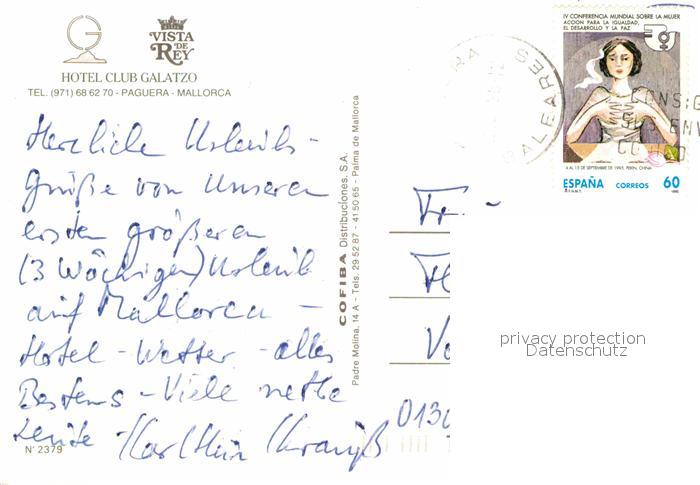 VISTA
DE
REY
HOTEL CLUB GALATZO
TEL. (971) 68 62 70 - PAGUERA - MALLORCA
Herzliche Urlaubs-
Grüße von Unseren
ersten größeren
(3 Wöchigen) Urlaub
auf Mallorca -
Hotel - Wetter - alles
Bestens - Viele nette
Leute -
N° 2379
COFIBA Distribuciones, S.A.
Padre Molina, 14 A - Tels. 29 52 87 - 41 50 65 - Palma de Mallorca
IV CONFERENCIA MUNDIAL SOBRE LA MUJER
ACCION PARA LA IGUALDAD,
EL DESARROLLO Y LA PAZ
4 AL 15 DE SEPTIEMBRE DE 1995, PEKIN, CHINA
ESPAÑA CORREOS 60
BALEARES
privacy protection
Datenschutz